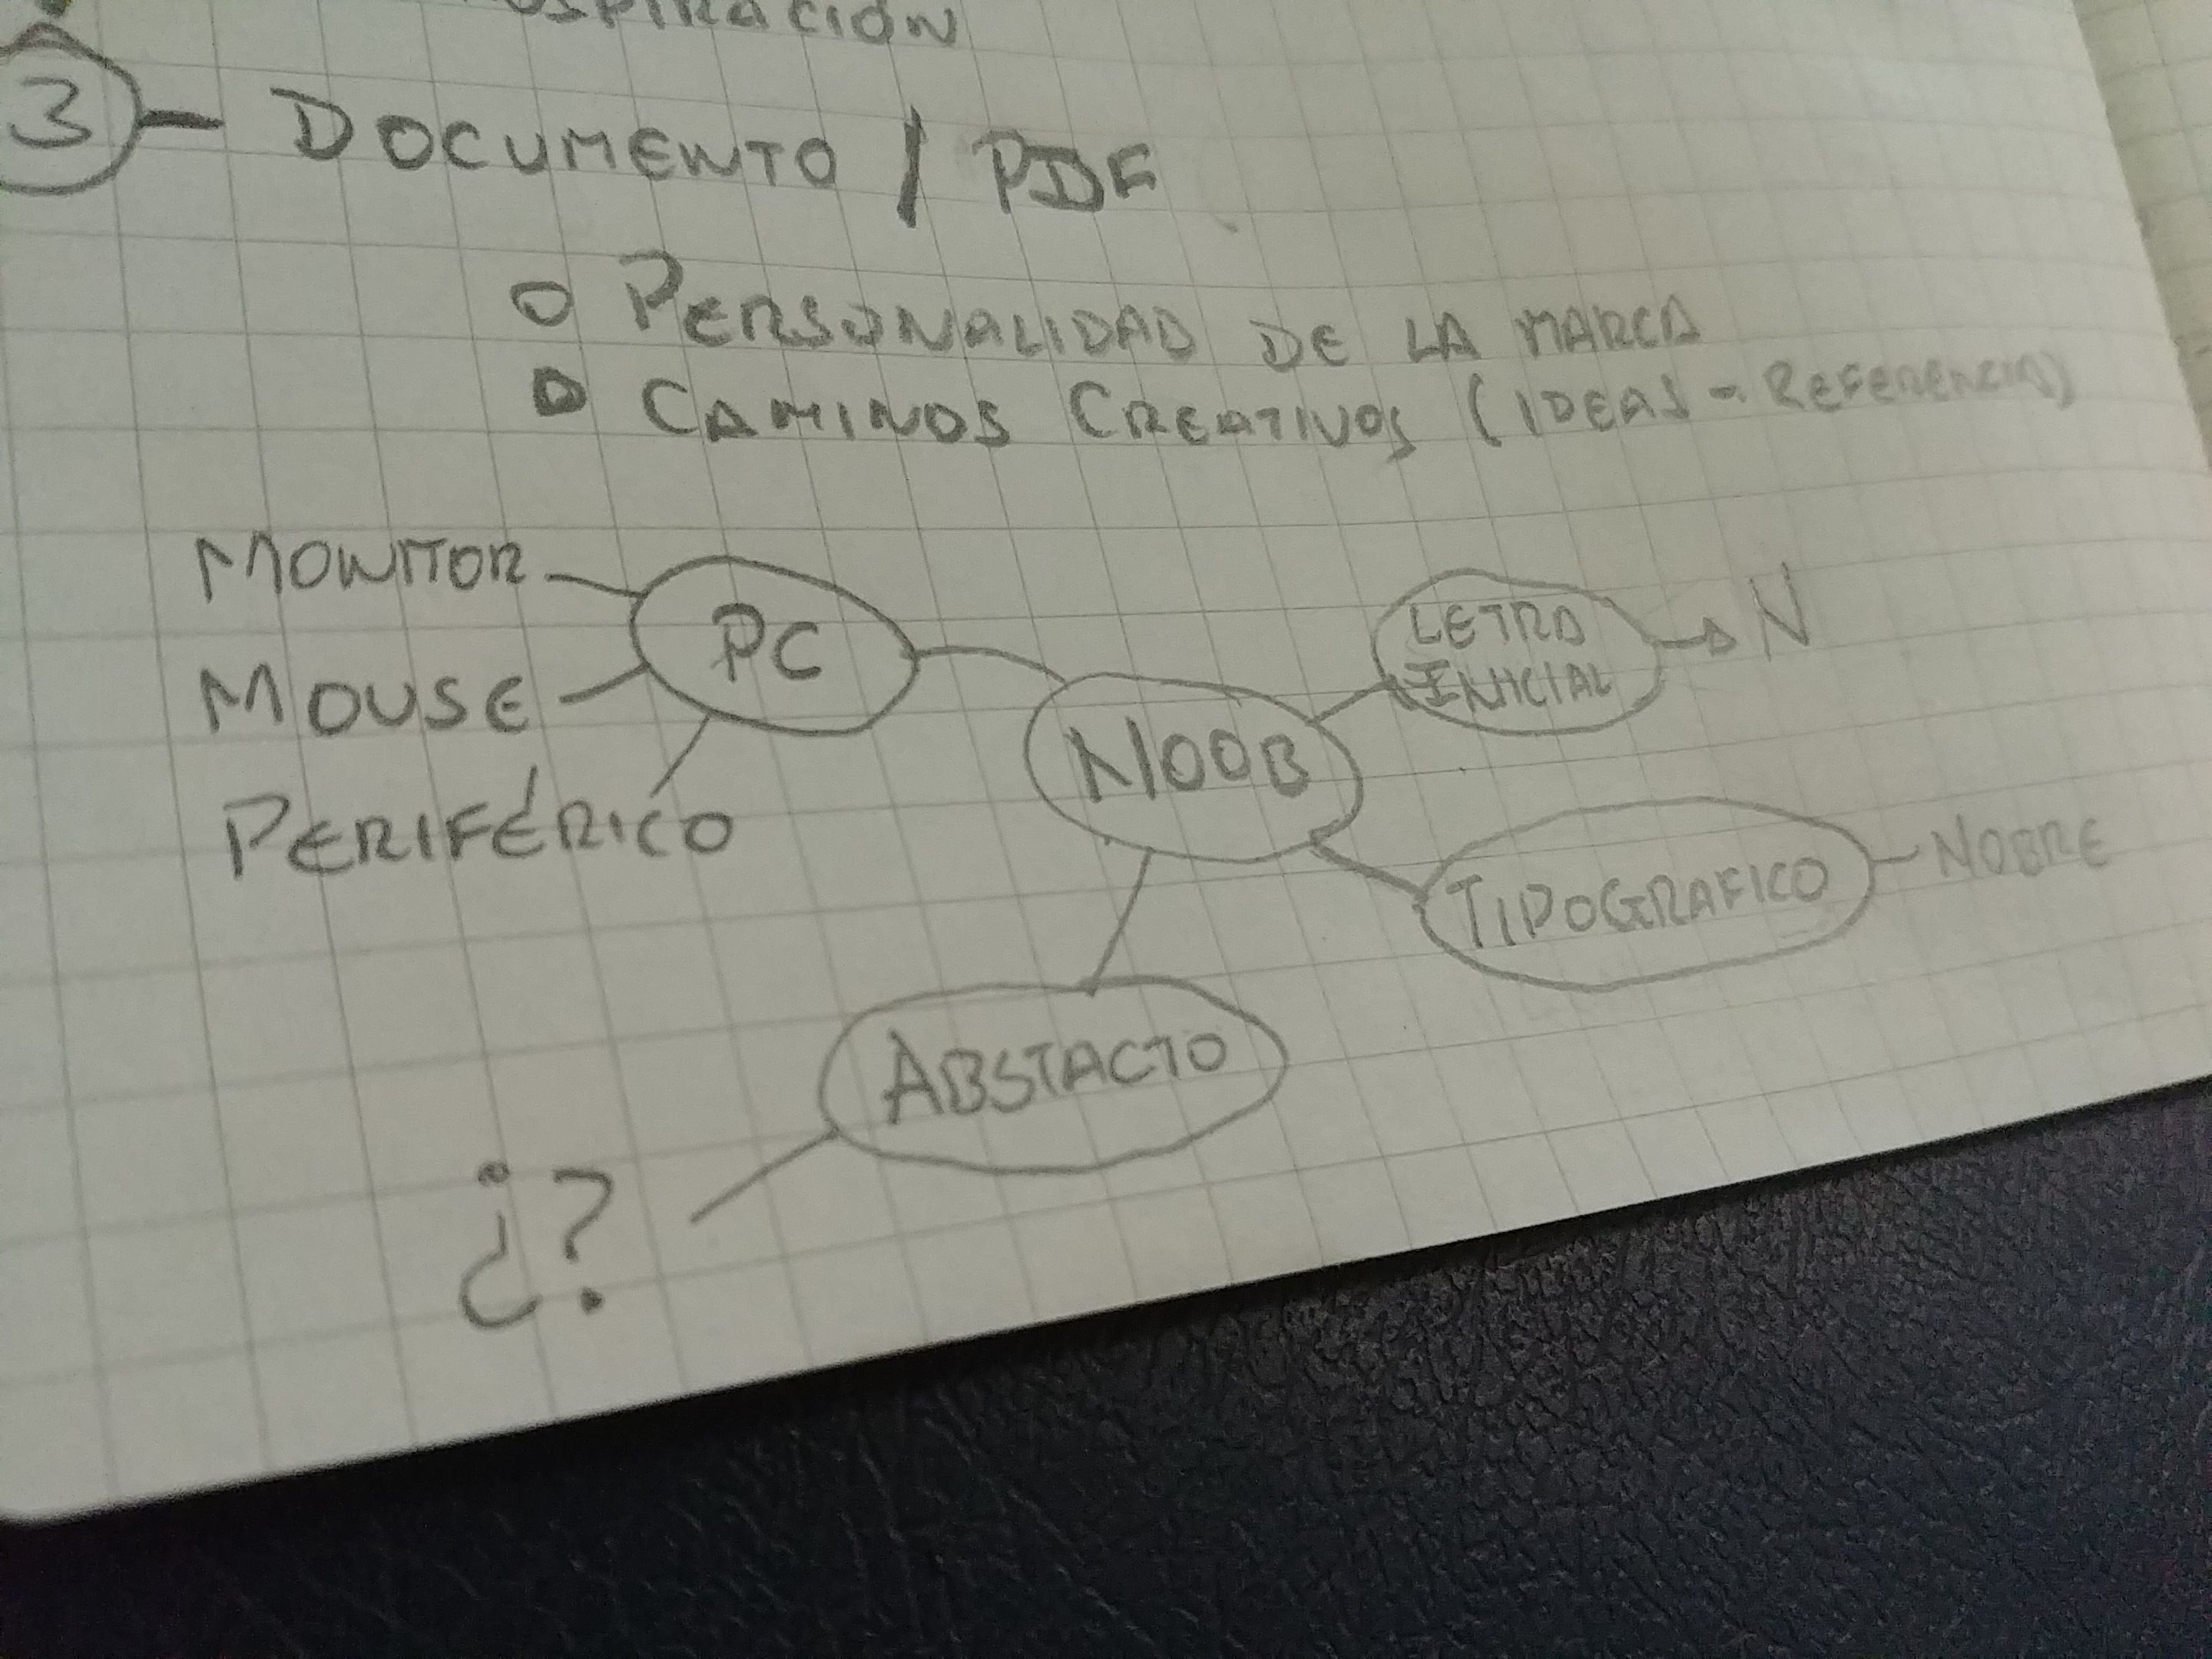 3 - DOCUMENTO / PDF
PERSONALIDAD DE LA MARCA
CAMINOS CREATIVOS (IDEAS - REFERENCIAS)
MONITOR
MOUSE
PERIFÉRICO
PC
NOOB
LETRA
INICIAL
N
TIPOGRAFICO
NOBRE
ABSTACTO
¿?